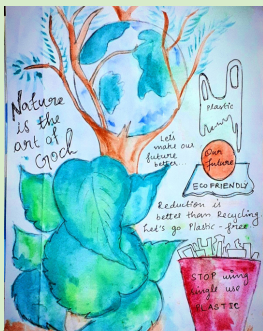 Nature
is the
art of
God
Plastic
Let's
make our
future
better...
Our
future
ECO FRIENDLY
Reduction is
better than Recycling
Let's go Plastic-free
STOP using
single use
PLASTIC